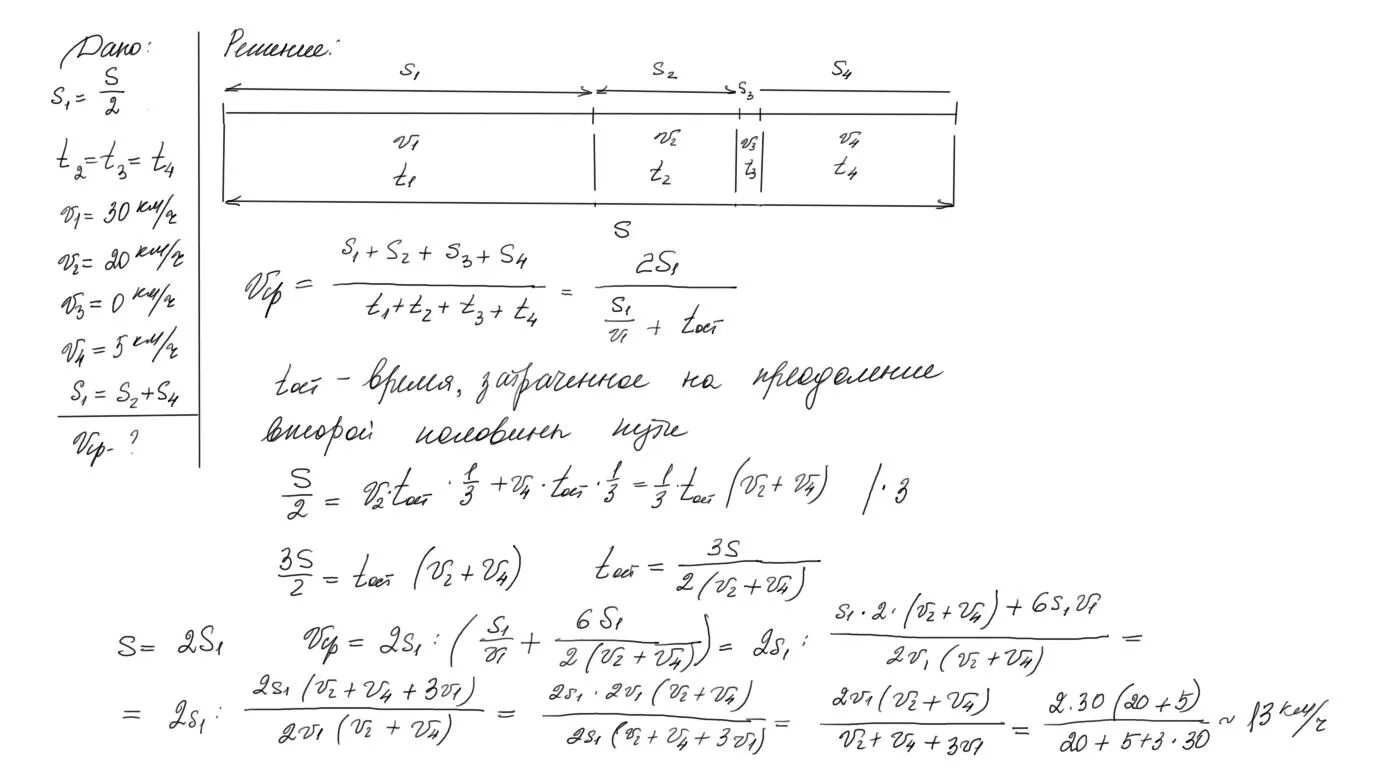 Дано:
S₁ = S/2
t₂ = t₃ = t₄
v₁ = 30 км/ч
v₂ = 20 км/ч
v₃ = 0 км/ч
v₄ = 5 км/ч
S₁ = S₂ + S₄
vср - ?
Решение:
S₁ S₂ S₃ S₄
v₁ v₂ v₃ v₄
t₁ t₂ t₃ t₄
S
vср = (S₁ + S₂ + S₃ + S₄)/(t₁ + t₂ + t₃ + t₄) = 2S₁/(S₁/v₁ + tост)
tост - время, затраченное на преодоление
второй половины пути
S/2 = v₂·tост · 1/3 + v₄ · tост · 1/3 = 1/3 · tост (v₂ + v₄) | · 3
3S/2 = tост (v₂ + v₄) tост = 3S/(2(v₂ + v₄))
S = 2S₁ vср = 2S₁ : (S₁/v₁ + 6S₁/(2(v₂ + v₄))) = 2S₁ : (S₁ · 2 · (v₂ + v₄) + 6S₁v₁)/(2v₁(v₂ + v₄)) =
= 2S₁ : (2S₁(v₂ + v₄ + 3v₁))/(2v₁(v₂ + v₄)) = (2S₁ · 2v₁(v₂ + v₄))/(2S₁(v₂ + v₄ + 3v₁)) = (2v₁(v₂ + v₄))/(v₂ + v₄ + 3v₁) = (2·30(20 + 5))/(20 + 5 + 3·30) ~ 13 км/ч